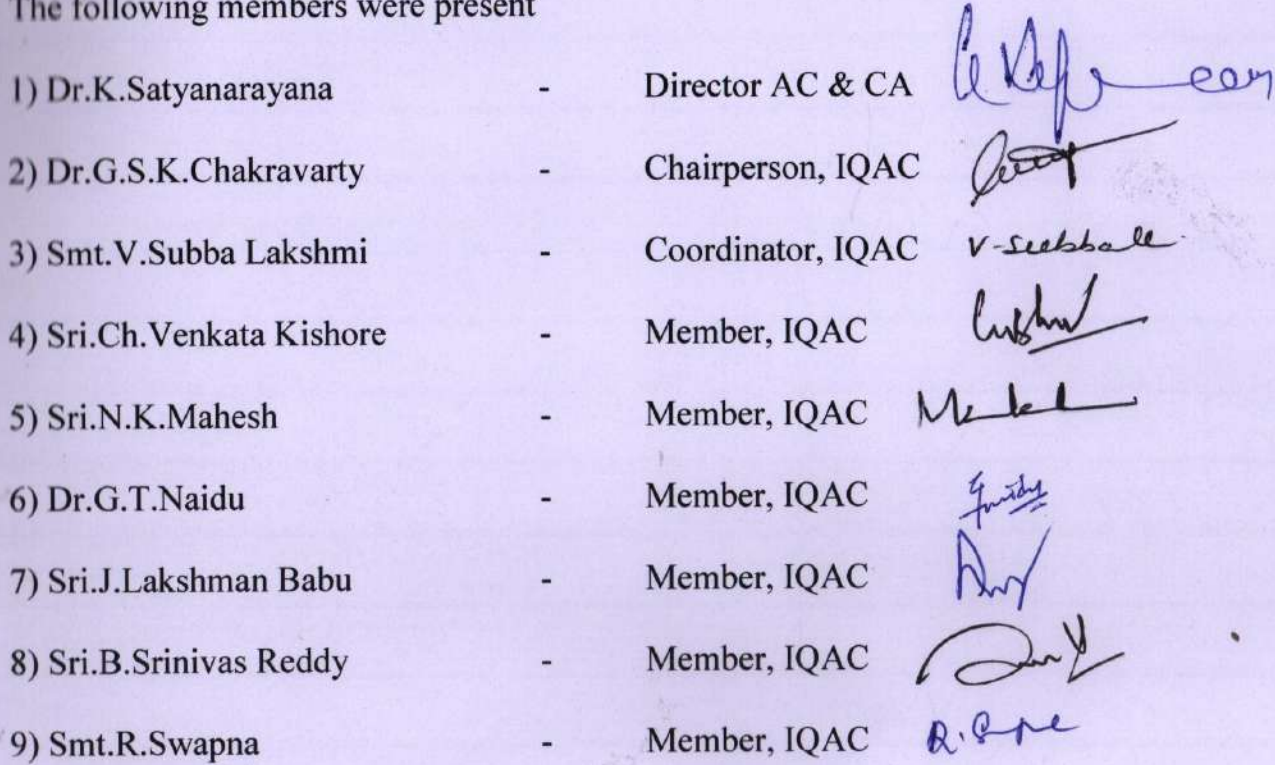 The following members were present
1) Dr.K.Satyanarayana - Director AC & CA
2) Dr.G.S.K.Chakravarty - Chairperson, IQAC
3) Smt.V.Subba Lakshmi - Coordinator, IQAC
4) Sri.Ch.Venkata Kishore - Member, IQAC
5) Sri.N.K.Mahesh - Member, IQAC
6) Dr.G.T.Naidu - Member, IQAC
7) Sri.J.Lakshman Babu - Member, IQAC
8) Sri.B.Srinivas Reddy - Member, IQAC
9) Smt.R.Swapna - Member, IQAC